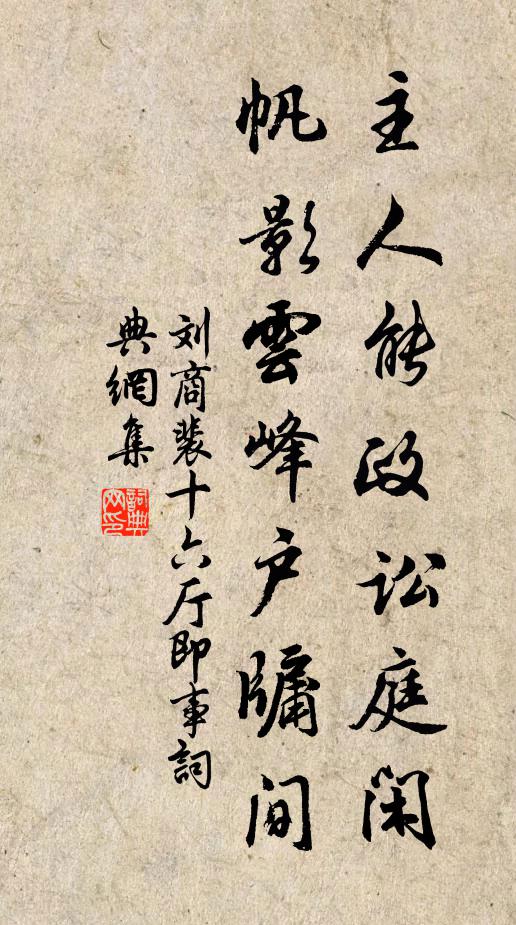 主人能政讼庭闲
帆影雲峰户牖间
刘商裴十六厅即事詞
典網集
詞典网印